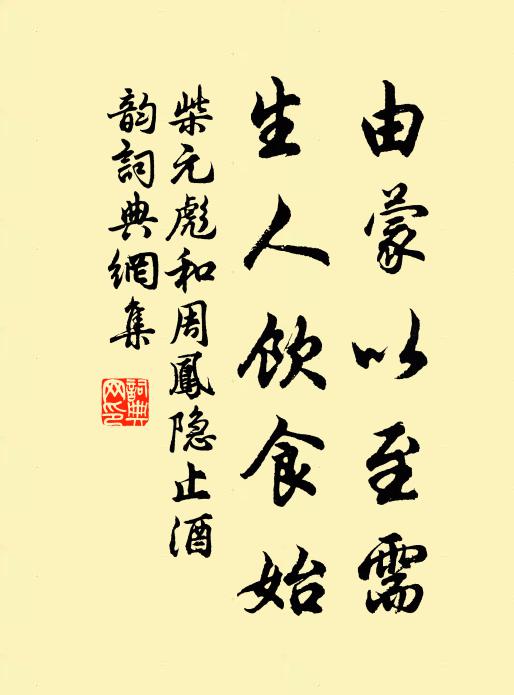 由蒙以至需
生人飲食始
柴元彪和周鳳隐止酒
韵詞典網集
詞典
网印